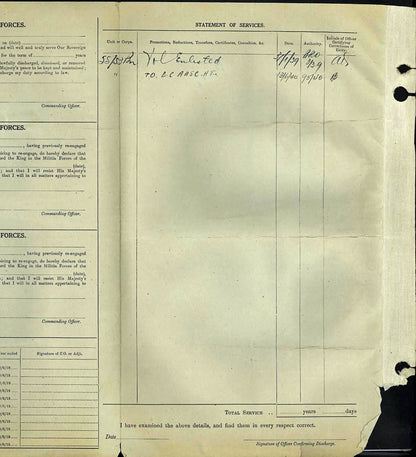 FORCES.
on (date)
and will well and truly serve Our Sovereign
for the term of years
fully discharged, dismissed, or removed
Majesty's peace to be kept and maintained;
charge my duty according to law.
Commanding Officer.
FORCES.
, having previously re-engaged
siring to re-engage, do hereby declare that
ed the King in the Militia Forces of the
(date),
; and that I will resist His Majesty's
that I will in all matters appertaining to
Commanding Officer.
FORCES.
, having previously re-engaged
siring to re-engage, do hereby declare that
ed the King in the Militia Forces of the
(date);
; and that I will resist His Majesty's
that I will in all matters appertaining to
Commanding Officer.
year ended
Signature of C.O. or Adjt.
STATEMENT OF SERVICES.
Unit or Corps.
Promotions, Reductions, Transfers, Certificates, Casualties, &c.
Date.
Authority.
Initials of Officer Certifying Correctness of Entry.
Enlisted
TO
TOTAL SERVICE years days
I have examined the above details, and find them in every respect correct.
Date
Signature of Officer Confirming Discharge.